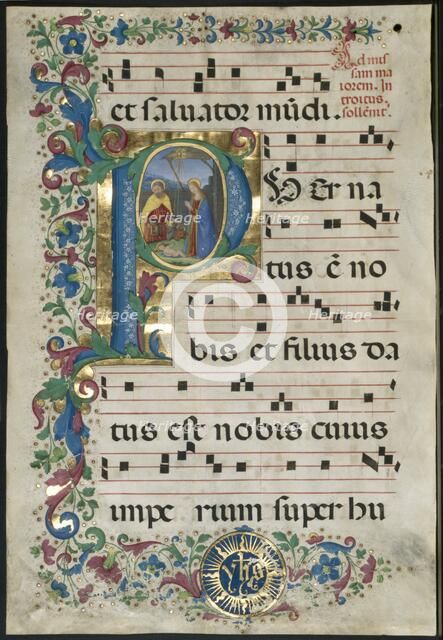 Ad mis
sam ma
iorem. In
troitus.
sollenit
et saluator mūdi.
PUEr na
tus ē no
bis et filius da
tus est nobis cuius
impe rium super hu
yhs
Heritage
Heritage
Heritage
Heritage
Heritage
Heritage